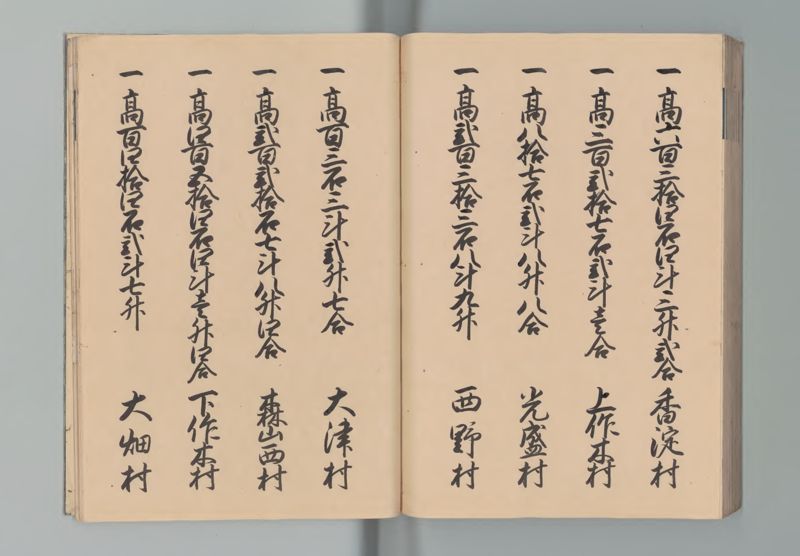 一 高六百三拾四石四斗三升弐合 香淀村
一 高三百弐拾七石弐斗壱合 上作木村
一 高八拾七石弐斗八升八合 光盛村
一 高弐百三拾三石八斗九升 西野村
一 高百三石三斗弐升七合 大津村
一 高弐百弐拾石七斗八升四合 森山西村
一 高四百五拾四石四斗壱升四合 下作木村
一 高百四拾四石弐斗七升 大畑村